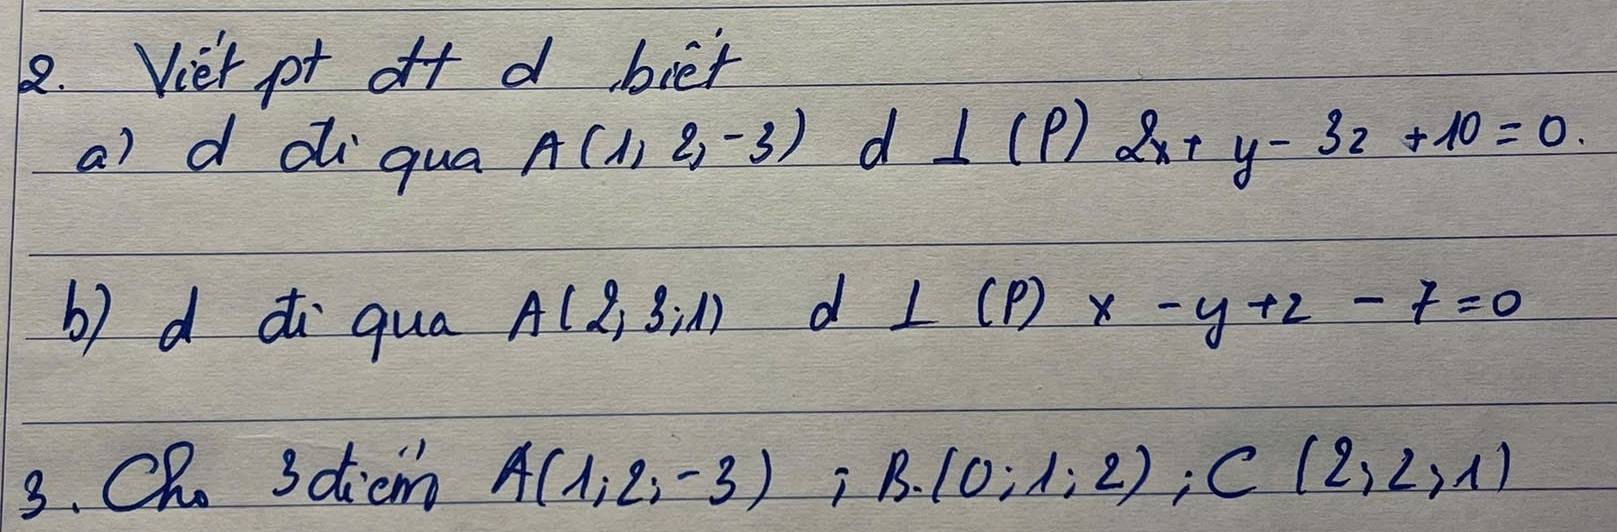 2. Viết pt đt d biết
a) d đi qua A(1; 2; -3) d ⊥ (P) 2x + y - 3z + 10 = 0.
b) d đi qua A(2; 3; 1) d ⊥ (P) x - y + z - 7 = 0
3. Cho 3 điểm A(1; 2; -3) ; B.(0; 1; 2) ; C (2; 2; 1)